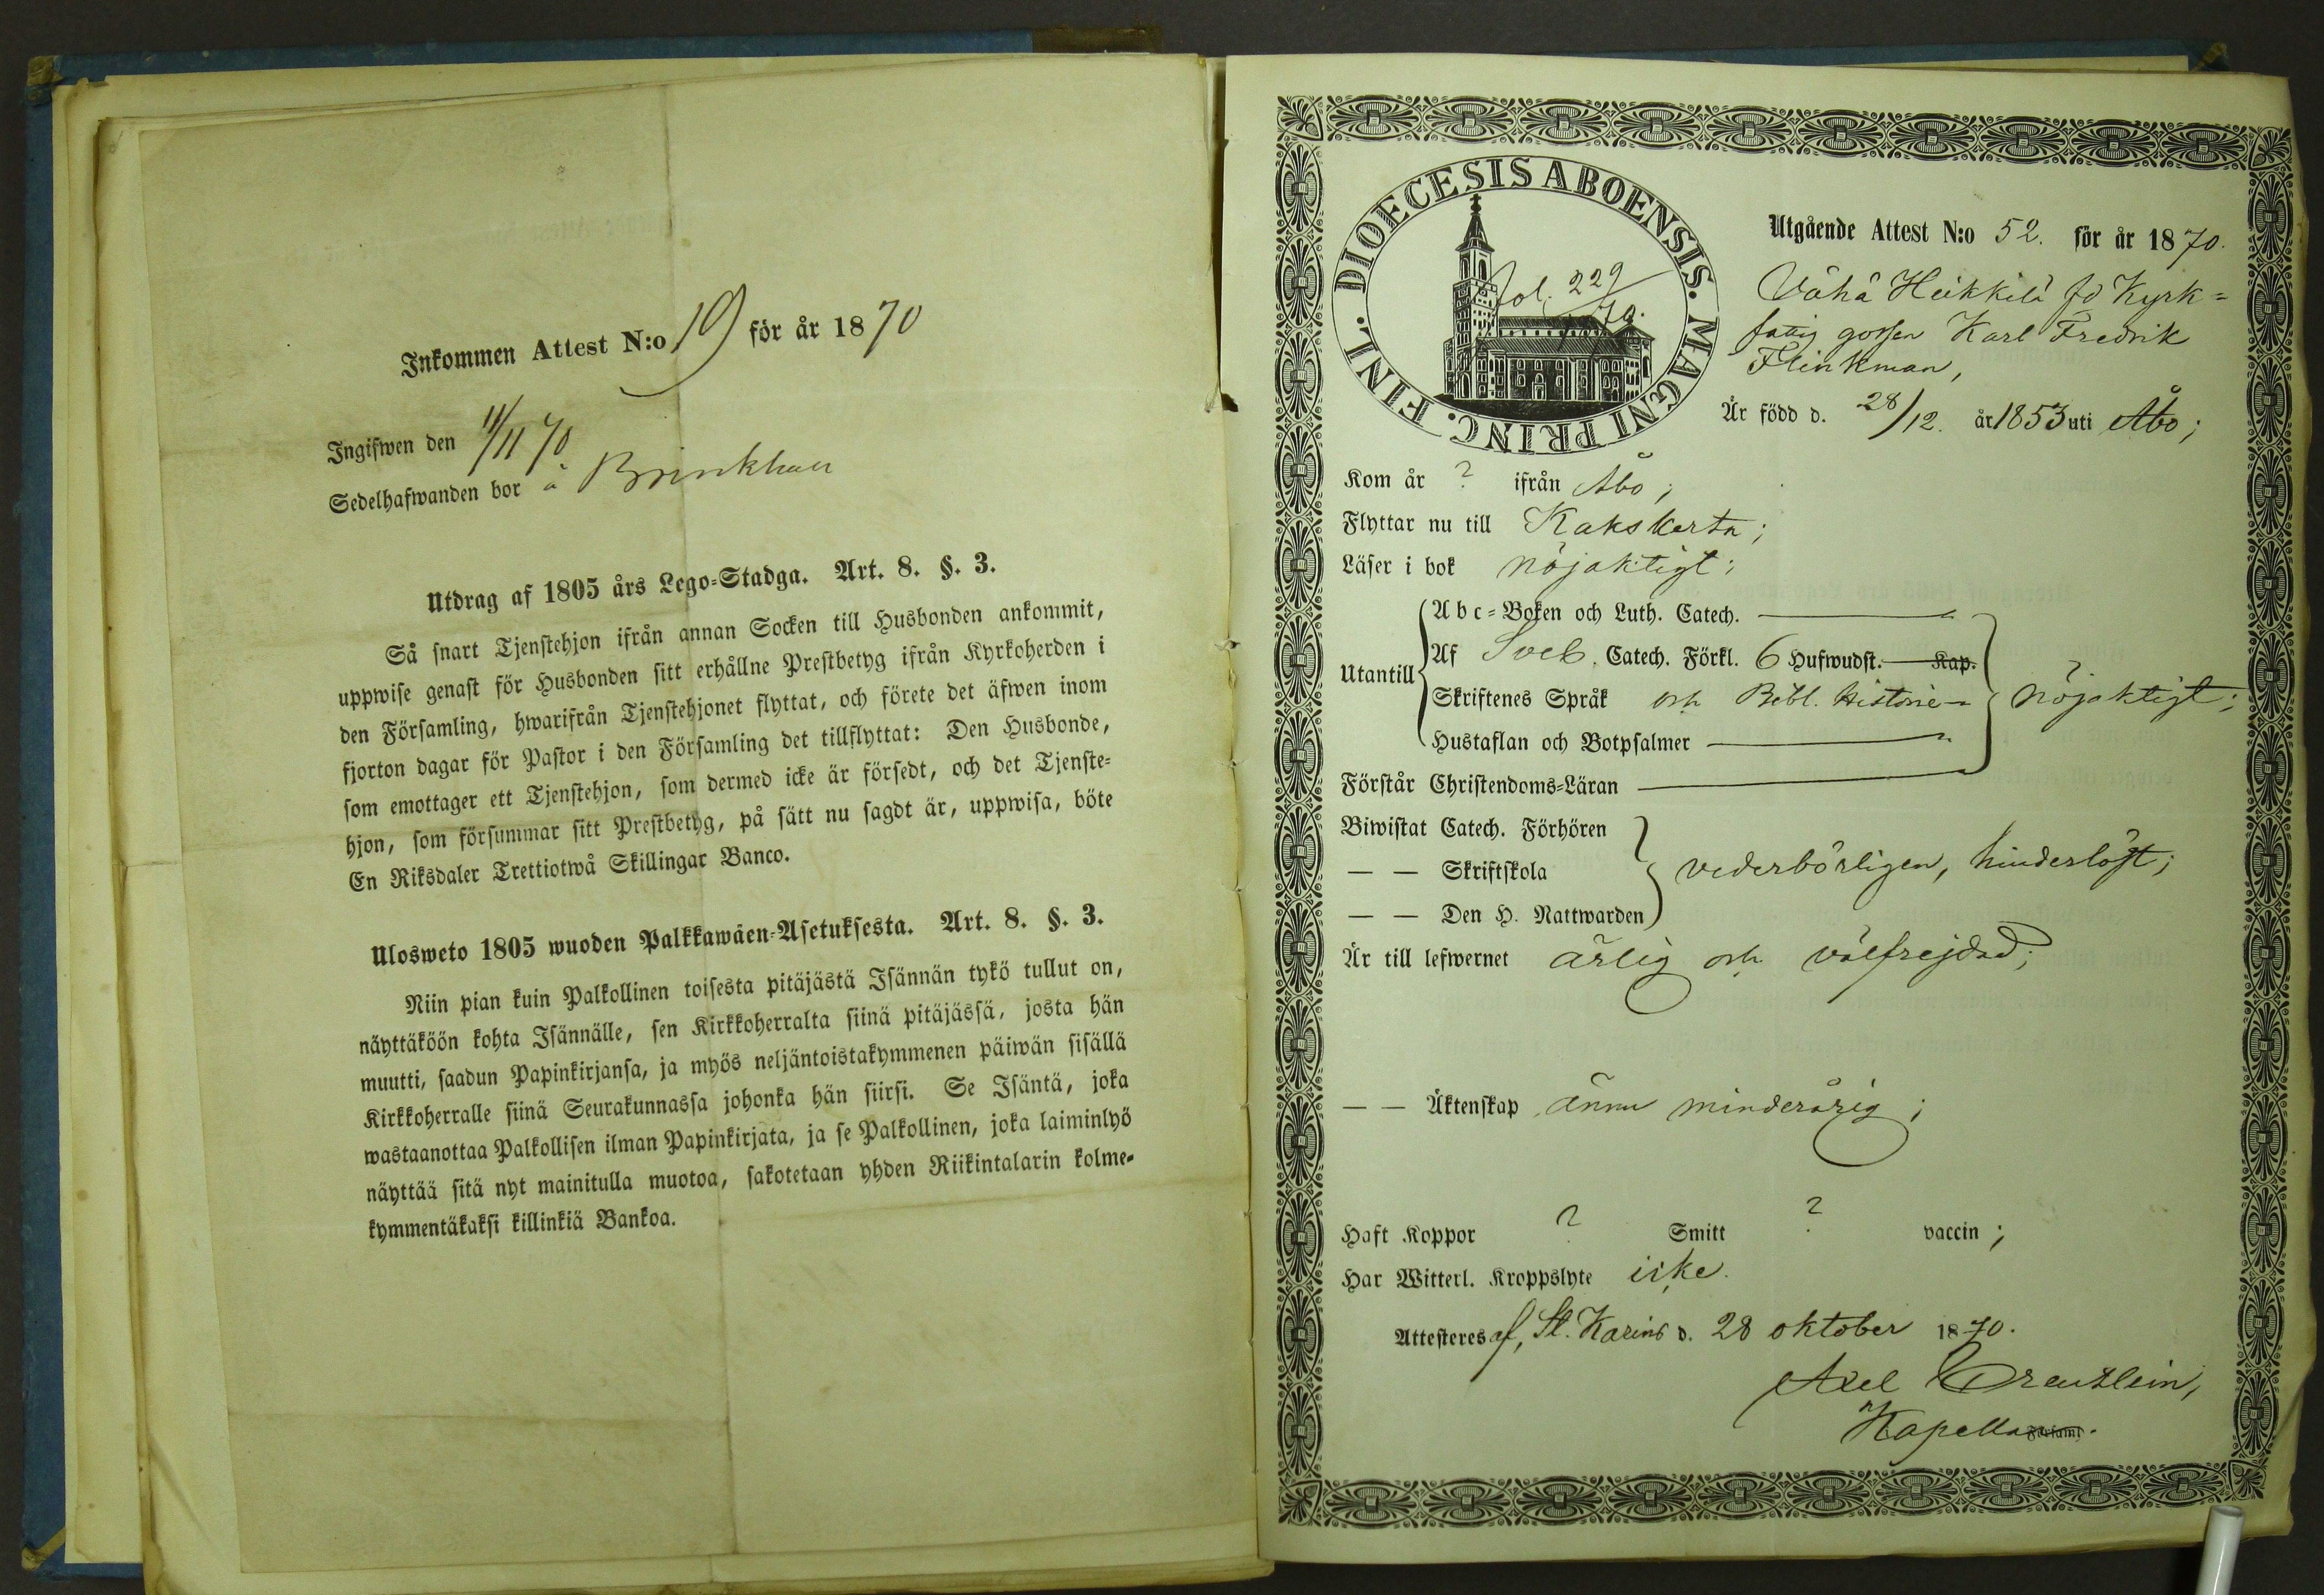 Inkommen Attest N:o 19 för år 1870
Ingifwen den 11/11 70
Sedelhafwanden bor å Brinkhall
Utdrag af 1805 års Lego-Stadga. Art. 8. §. 3.
Så snart Tjenstehjon ifrån annan Socken till Husbonden ankommit,
uppwise genast för Husbonden sitt erhållne Prestbetyg ifrån Kyrkoherden i
den Församling, hwarifrån Tjenstehjonet flyttat, och förete det äfwen inom
fjorton dagar för Pastor i den Församling det tillflyttat: Den Husbonde,
som emottager ett Tjenstehjon, som dermed icke är försedt, och det Tjenste-
hjon, som försummar sitt Prestbetyg, på sätt nu sagdt är, uppwisa, böte
En Riksdaler Trettiotwå Skillingar Banco.
Ulosweto 1805 wuoden Palkkawäen-Asetuksesta. Art. 8. §. 3.
Niin pian kuin Palkollinen toisesta pitäjästä Isännän tykö tullut on,
näyttäköön kohta Isännälle, sen Kirkkoherralta siinä pitäjässä, josta hän
muutti, saadun Papinkirjansa, ja myös neljäntoistakymmenen päiwän sisällä
Kirkkoherralle siinä Seurakunnassa johonka hän siirsi. Se Isäntä, joka
wastaanottaa Palkollisen ilman Papinkirjata, ja se Palkollinen, joka laiminlyö
näyttää sitä nyt mainitulla muotoa, sakotetaan yhden Riikintalarin kolme-
kymmentäkaksi killinkiä Bankoa.
DIOECESIS ABOENSIS. MAGNI PRINC. FINL.
fol. 229
Utgående Attest N:o 52. för år 1870.
Vähä Heikkilä fd Kyrk=
fattig gossen Karl Fredrik
Flinkman,
Är född d. 28/12. år 1853 uti Åbo;
Kom år ? ifrån Åbo;
Flyttar nu till Kakskerta;
Läser i bok nöjaktigt;
Utantill
Abc-Boken och Luth. Catech.
Af Sveb. Catech. Förkl. 6 Hufwudst. Kap.
Skriftenes Språk och Bibl. Historie
nöjaktigt;
Hustaflan och Botpsalmer
Förstår Christendoms-Läran
Biwistat Catech. Förhören
— — Skriftskola
vederbörligen, hinderlöst;
— — Den H. Nattwarden
Är till lefwernet ärlig och välfrejdad;
— — Äktenskap ännu minderårig;
Haft Koppor ? Smitt ? vaccin;
Har Witterl. Kroppslyte icke.
Attesteres af, St. Karins d. 28 oktober 1870.
Axel